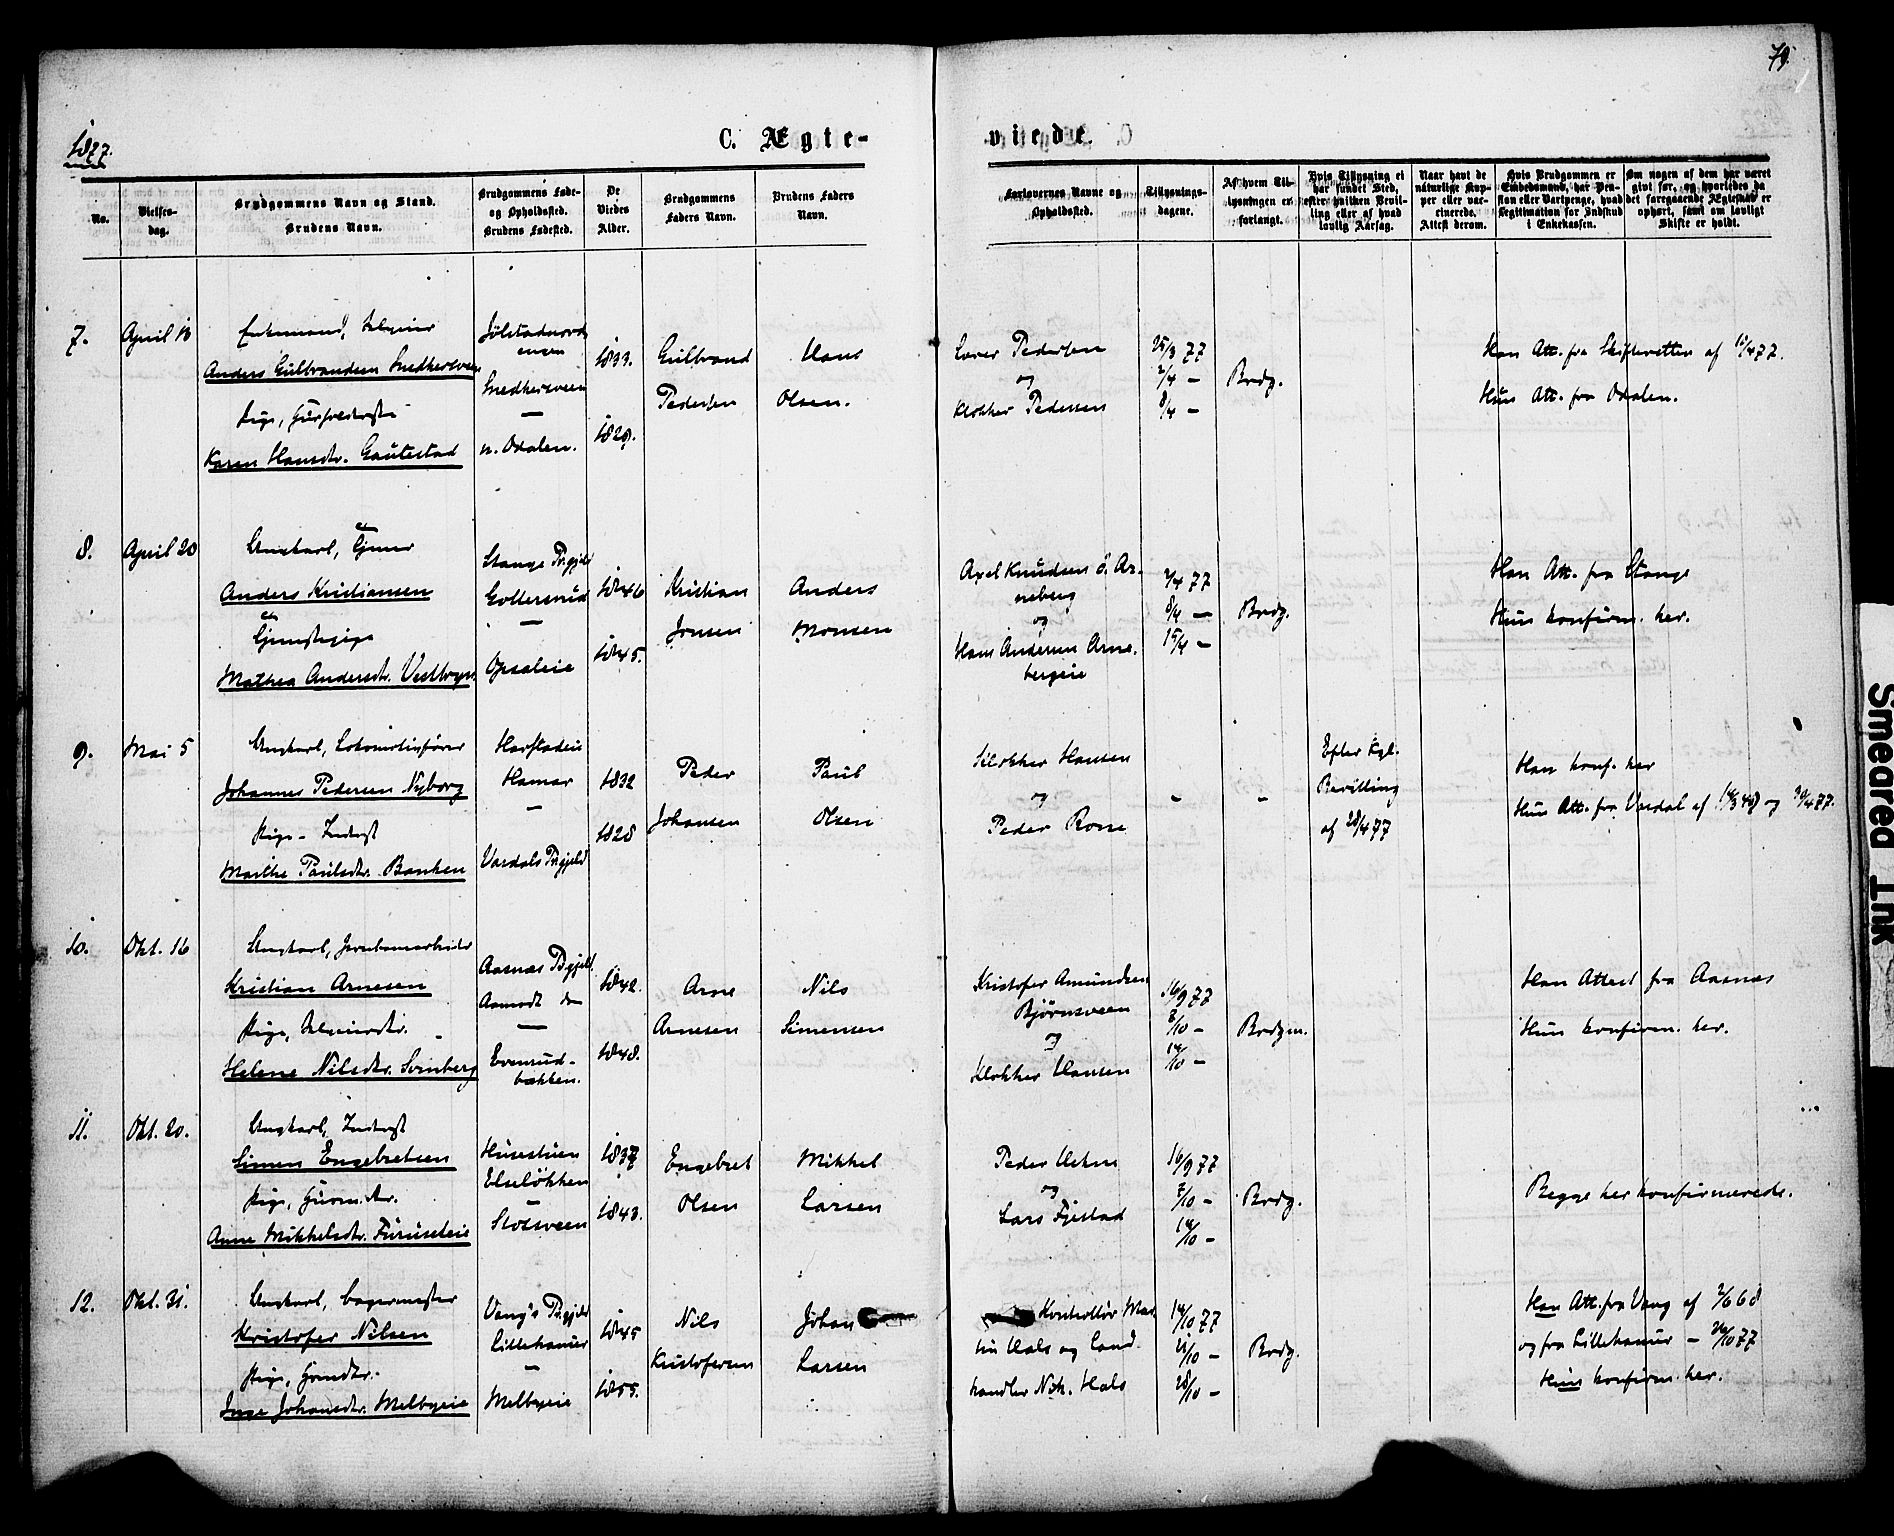 79.
1877.
C. Ægte-
viede.
No.
Vielses-
dag.
Brudgommens Navn og Stand.
Brudens Navn.
Brudgommens Føde-
og Opholdssted.
Brudens Fødested.
De
Viedes
Alder.
Brudgommens
Faders Navn.
Brudens Faders
Navn.
Forlovernes Navne og
Opholdssted.
Tillysnings-
dagene.
Af hvem Til-
lysningen er
forlangt.
Hvis Tillysning ei
har fundet Sted,
efter hvilken Bevil-
ling eller af hvad
lovlig Aarsag.
Naar havt de
naturlige Kop-
per eller vac-
cinerede.
Attest derom.
Hvis Brudgommen er
Embedsmand, har Pen-
sion eller Vartpenge, hvad
Legitimation for Indskud
i Enkekassen.
Om nogen af dem har været
gift før, og hvorledes da
det foregaaende Ægteskab er
ophørt, samt om lovligt
Skifte er holdt.
7.
April 18
Enkemand,
Anders Gulbrandsen Snedkersveen
Pige,
Karen Hansdtr. Gautestad
Snedkersveen
—
n. Odalen.
1833.
1829.
Gulbrand
Pedersen
Hans
Olsen.
Pedersen
og
Klokker Pedersen
25/3 77
2/4 —
8/4 —
Brdg.
Han Att. fra Skifteretten af 11/4 77.
Hun Att. fra Odalen.
8.
April 20
Ungkarl,
Anders Kristiansen
Tjenestepige
Mathea Andersdtr. Vestbyen
Stange Prgjeld
Gottersrud
—
Opsaleie
1846
1845.
Kristian
Jonsen
Anders
Monsen
Axel Knudsen ø. Ar-
neberg
og
Hans Andersen Arne-
bergeie
2/4 77
8/4 —
15/4 —
Brdg.
Han Att. fra Stange
Hun konfirm. her.
9.
Mai 5
Ungkarl, Lokomotivfører
Johannes Pedersen Nyborg
Pige - Inderst
Marthe Paulsdtr. Banken
Harstadeie
Hamar
—
Vardals Prgjeld
1832
1828
Peder
Johansen
Paul
Olsen
Klokker Hansen
og
Peder Rone
-
-
Efter Kgl.
Bevilling
af 28/4 77
Han konf. her
Hun Att. fra Vardal af 14/3 48 og 30/4 77.
10.
Okt. 16
Ungkarl, Jernbanearbeider
Kristian Arnesen
Pige,
Helene Nilsdtr. Svinberg
Aasnæs Prgjeld.
Aamodt do
—
Evenrud-
bækken.
1842.
1848.
Arne
Arnesen
Nils
Simensen
Kristofer Amundsen
Bjørnsveen
og
Klokker Hansen
16/9 77
7/10 —
14/10 —
Brdgm.
Han Attest fra Aasnæs
Hun konfirm. her.
11.
Okt. 20.
Ungkarl, Inderst
Simen Engebretsen
Pige, Gaardm. dtr.
Anne Mikkelsdtr. Furuseteie
Husestuen
Elseløkken
—
Stosveen
1837
1843.
Engebret
Olsen
Mikkel
Larsen
Peder
og
Lars Fjestad
16/9 77
7/10 —
14/10 —
Brdg.
Begge her konfirmerede.
12.
Okt. 31.
Ungkarl, Lagermester
Kristofer Nilsen
Pige,
Inge Johansdtr. Melbyeie
Vang's Prgjeld
Lillehamer
—
Melbyeie
1845
1855.
Nils
Kristofersen
Johan
Larsen
Kontrollør Mar-
tin Hals og Land-
handler Nik. Hals
14/10 77
21/10 —
28/10 —
Brdg.
Han Att. fra Vang af 2/6 68
og fra Lillehamer — 26/10 77
Hun konfirm. her.
Smeared Ink